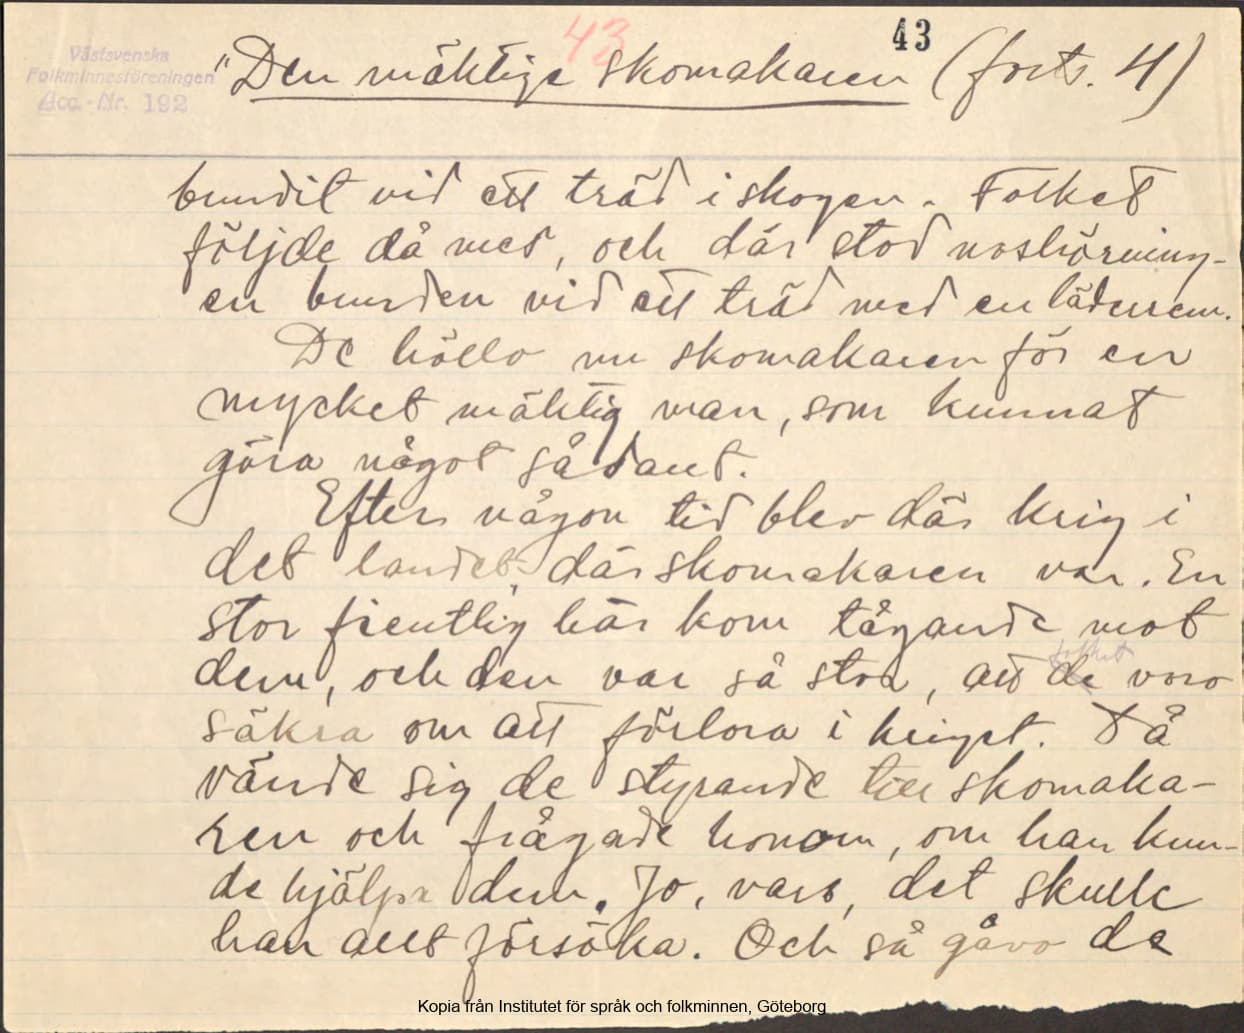 43
43
Västsvenska
Folkminnesföreningen
Acc.-Nr. 192
"Den mäktige skomakaren (forts. 4)
bundit vid ett träd i skogen. Folket
följde då med, och där stod noshörning-
en bunden vid ett träd med en läderrem.
De höllo nu skomakaren för en
mycket mäktig man, som kunnat
göra något sådant.
Efter någon tid blev där krig i
det landet, där skomakaren var. En
stor fientlig här kom tågande mot
folket
dem, och den var så stor, att de voro
säkra om att förlora i kriget. Då
vände sig de styrande till skomaka-
ren och frågade honom, om han kun-
de hjälpa dem. Jo, vars, det skulle
han allt försöka. Och så gåvo de
Kopia från Institutet för språk och folkminnen, Göteborg